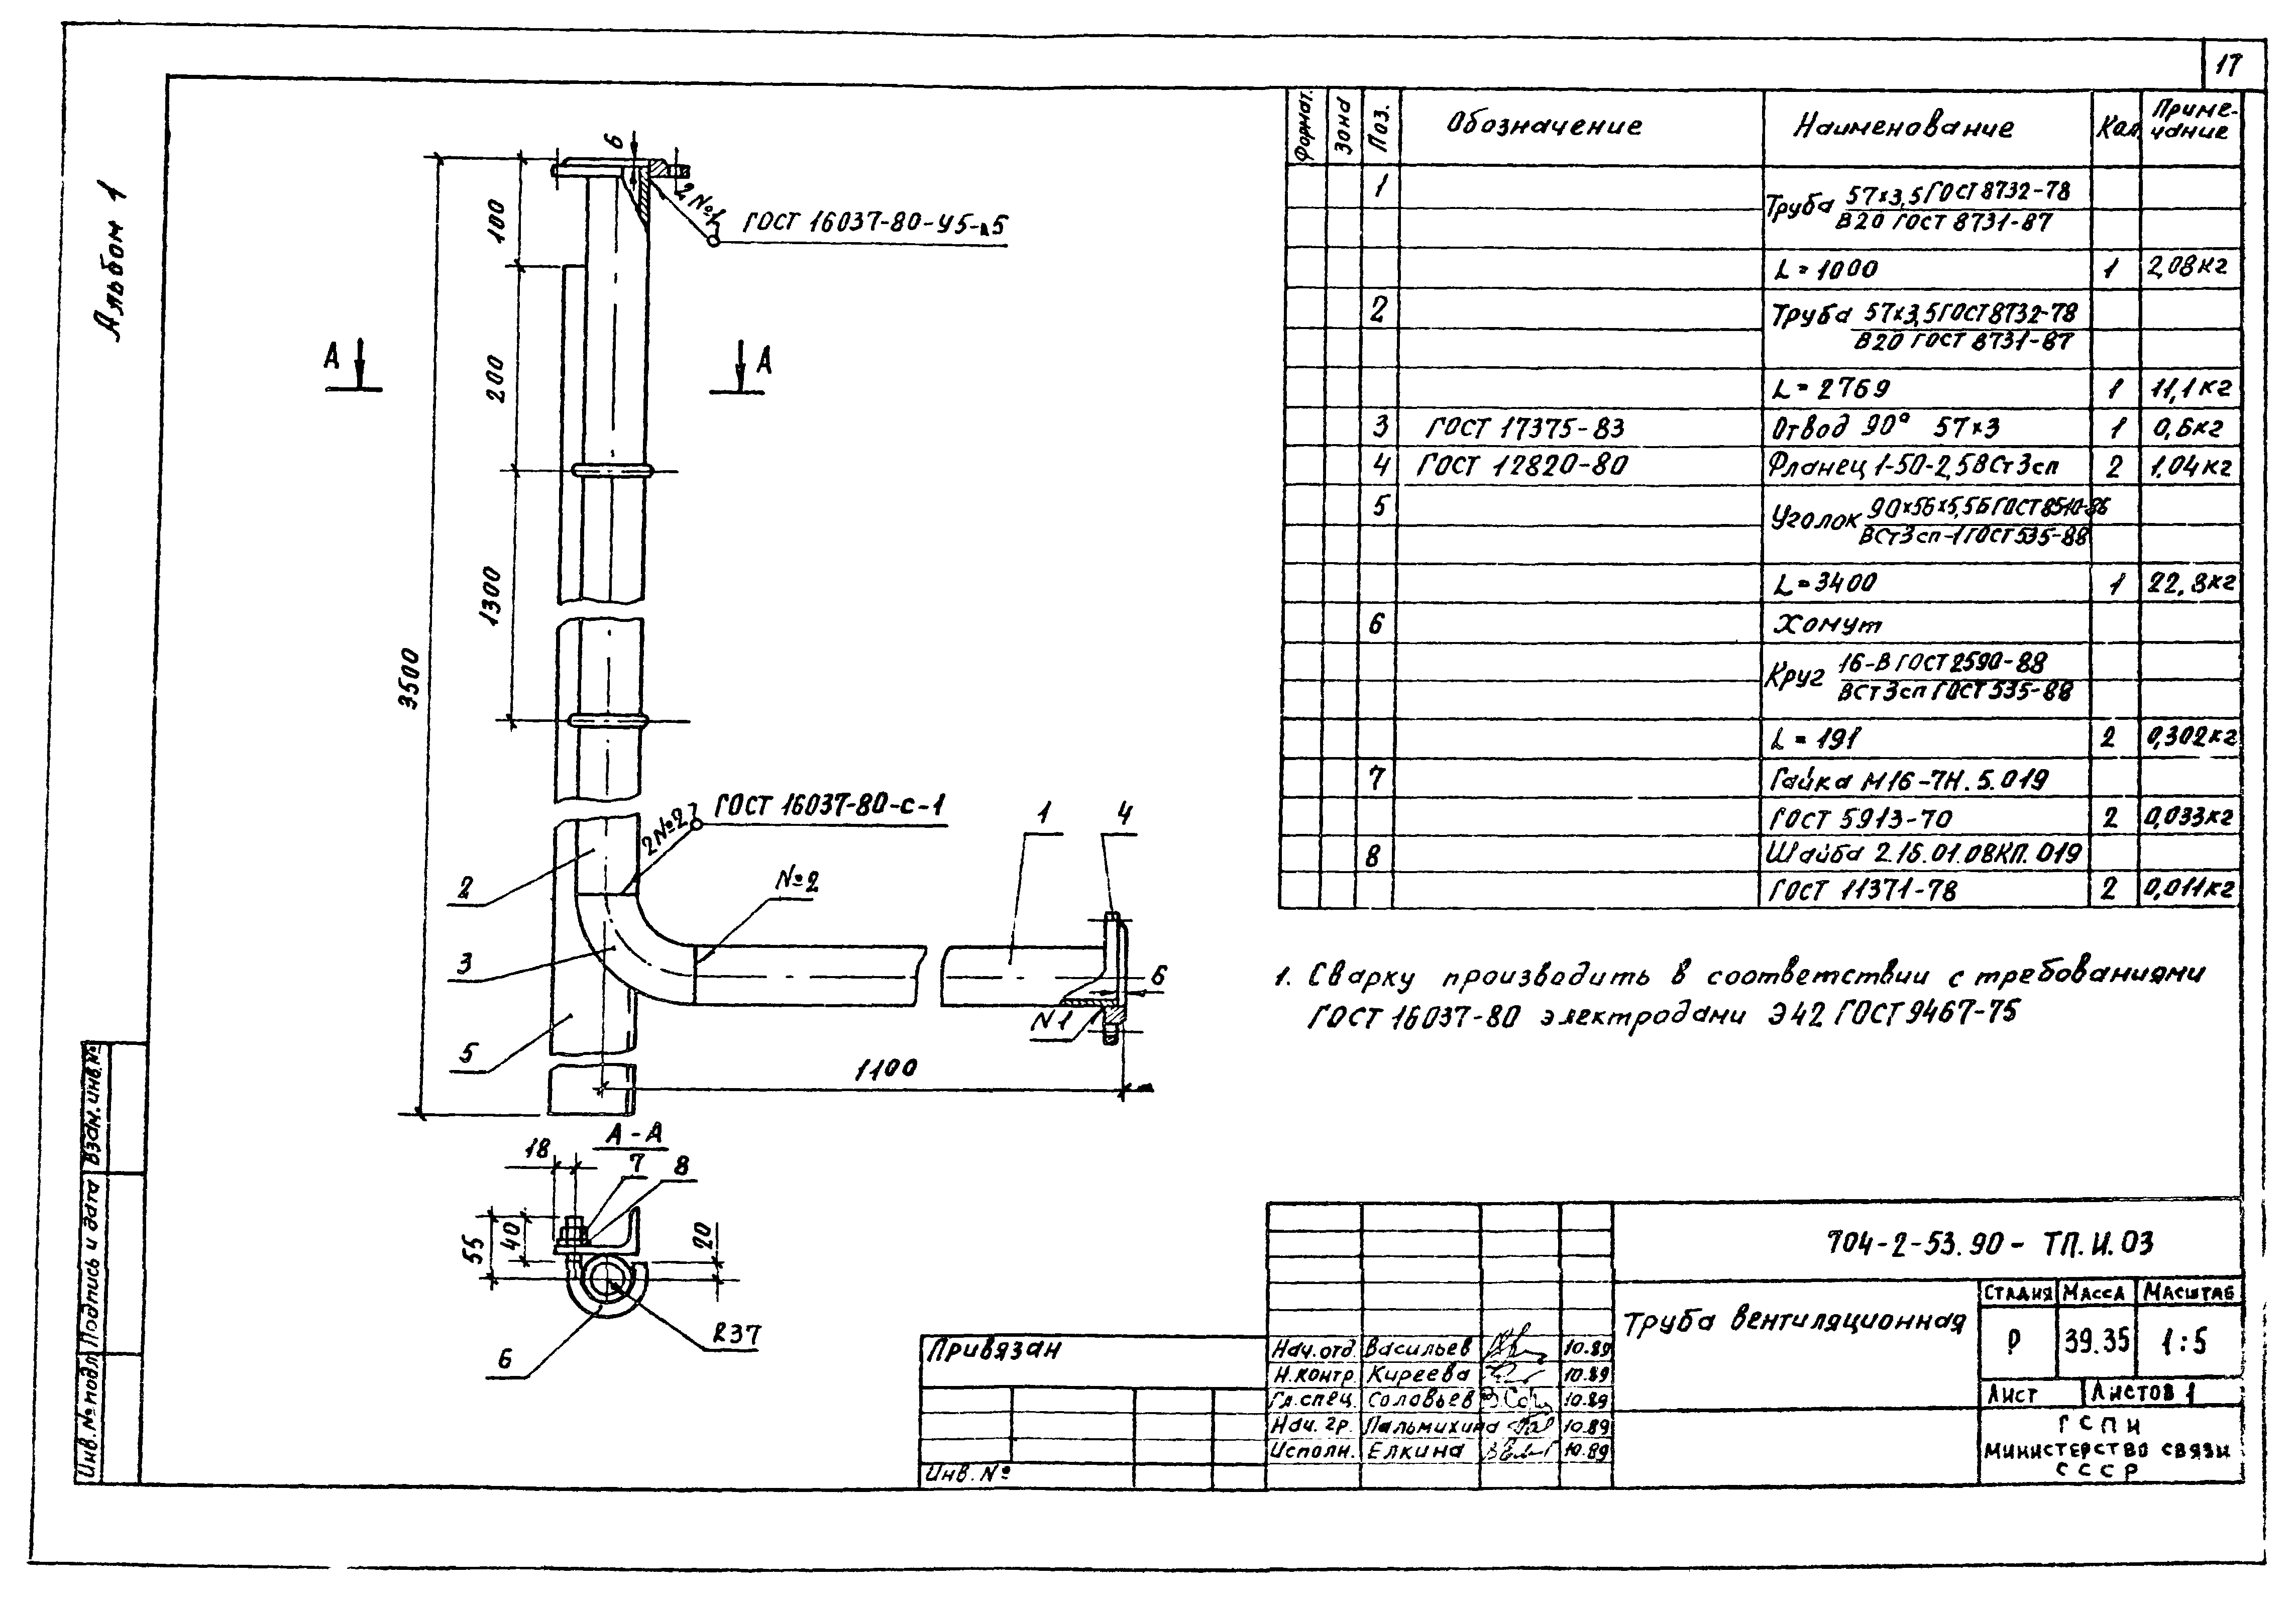 17
Альбом 1
Формат.
Зона
Поз.
Обозначение
Наименование
Кол
Приме-
чание
1
Труба 57×3,5 ГОСТ 8732-78
В20 ГОСТ 8731-87
L=1000 1 2,08кг
2
Труба 57×3,5 ГОСТ 8732-78
В20 ГОСТ 8731-87
L=2769 1 11,1кг
3 ГОСТ 17375-83 Отвод 90° 57×3 1 0,6кг
4 ГОСТ 12820-80 Фланец 1-50-2,5ВСт3сп 2 1.04кг
5
Уголок 90×56×5,5Б ГОСТ 8510-86
ВСт3сп-1 ГОСТ 535-88
L=3400 1 22,8кг
6 Хомут
Круг 16-В ГОСТ 2590-88
ВСт3сп ГОСТ 535-88
L=191 2 0,302кг
7 Гайка М16-7Н.5.019
ГОСТ 5913-70 2 0,033кг
8 Шайба 2.16.01.08КП.019
ГОСТ 11371-78 2 0,011кг
1. Сварку производить в соответствии с требованиями
ГОСТ 16037-80 электродами Э42 ГОСТ 9467-75
6
2 №1
ГОСТ 16037-80-У5-5
100
200
1300
3500
А
А
2 №2
ГОСТ 16037-80-С-1
№2
1
4
2
3
5
N1
6
1100
А-А
18
7
8
55
40
20
R37
6
Взам. инв. №
Подпись и дата
Инв. № подл
Привязан
Инв. №
Нач. отд. Васильев 10.89
Н. контр. Киреева 10.89
Гл. спец. Соловьев 10.89
Нач. гр. Пальмихина 10.89
Исполн. Елкина 10.89
704-2-53.90-ТП.И.03
Труба вентиляционная
Стадия Масса Масштаб
Р 39.35 1:5
Лист Листов 1
ГСПИ
Министерство связи
СССР